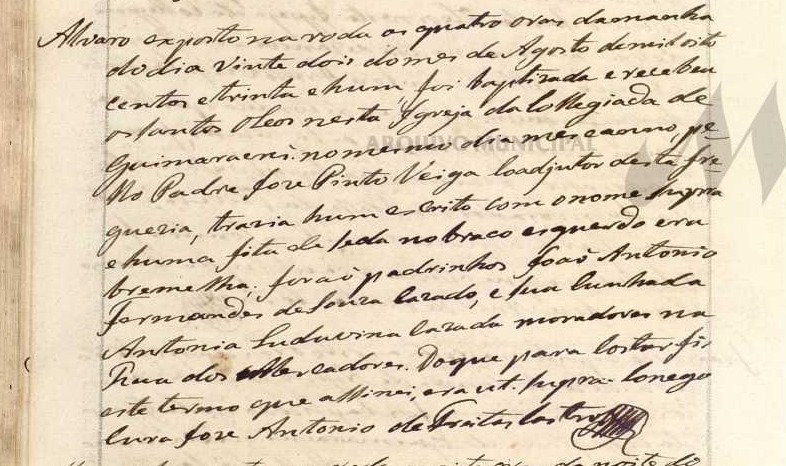 Alvaro exposto na roda as quatro oras damanha
do dia vinte dois domes de Agosto demil oito
centos e trinta e hum, foi baptizada e recebeu
os santos Oleos nesta Igreja da Collegiada de
Guimaraens. nomesmo dia mes anno, pe
ARQUIVO MUNICIPAL
llo Padre Joze Pinto Veiga Coadjutor desta fre
guezia, trazia hum escrito com onome supra
e huma fita de seda nobraco esquerdo era
bremelha; foraõ padrinhos Joaõ Antonio
Fernandes de Souza Cazado, e sua Cunhada
Antonia Luduvina Cazada moradores na
Rua dos Mercadores. Doque para Costar fis
este termo que assinei, era ut. supra. Conego
Cura Joze Antonio de Freitas Castro